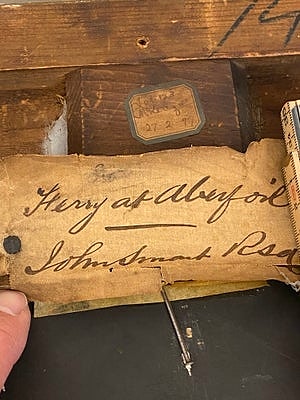 14
27-2-97
Ferry at Aberfoil
John Smart Rsa